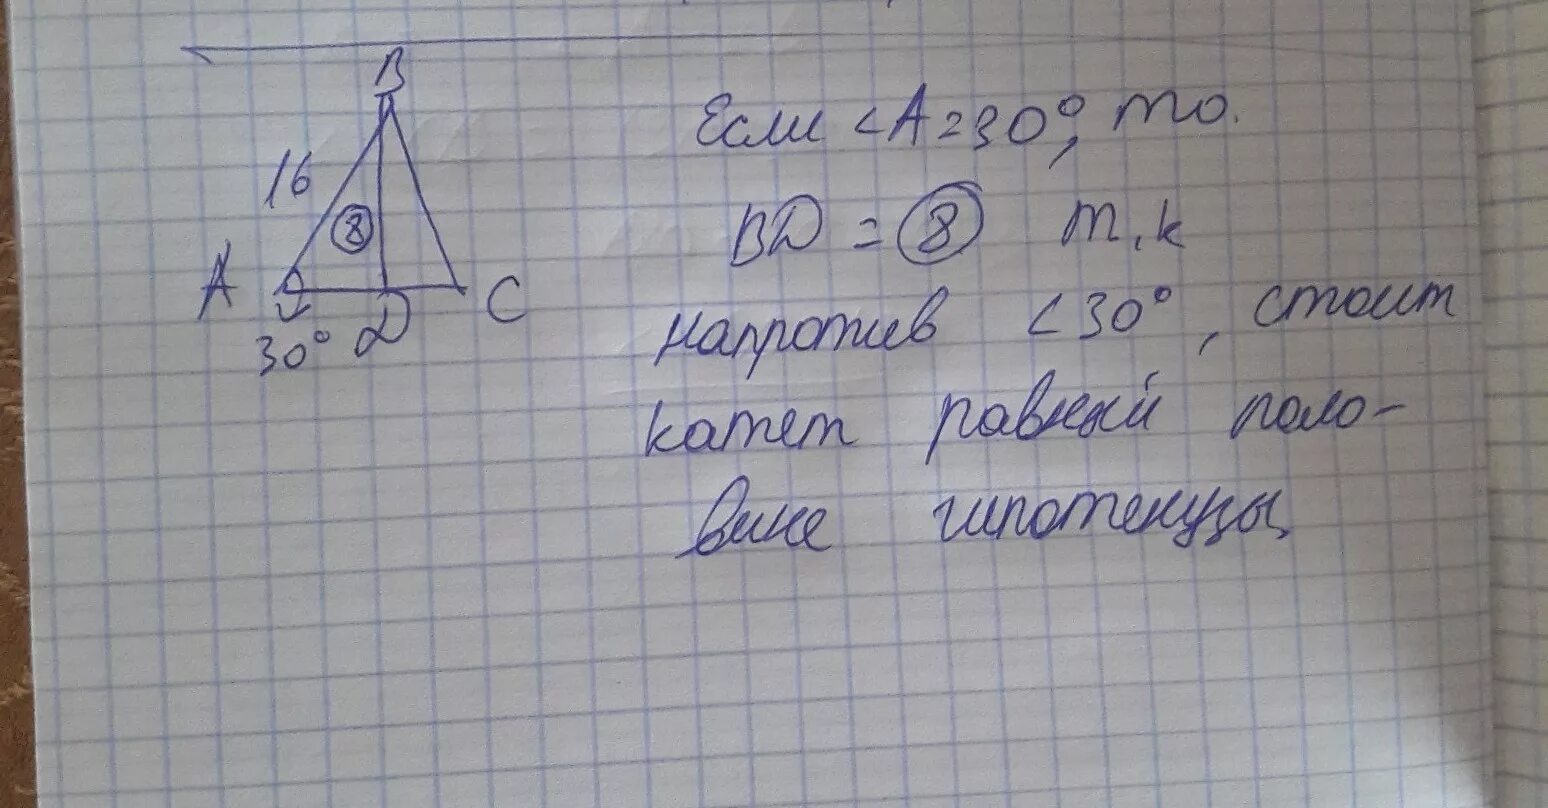 B
16
8
A
C
30° D
Если <A=30°, то.
BD = 8 т.к
напротив <30°, стоит
катет равный поло-
вине гипотенузы